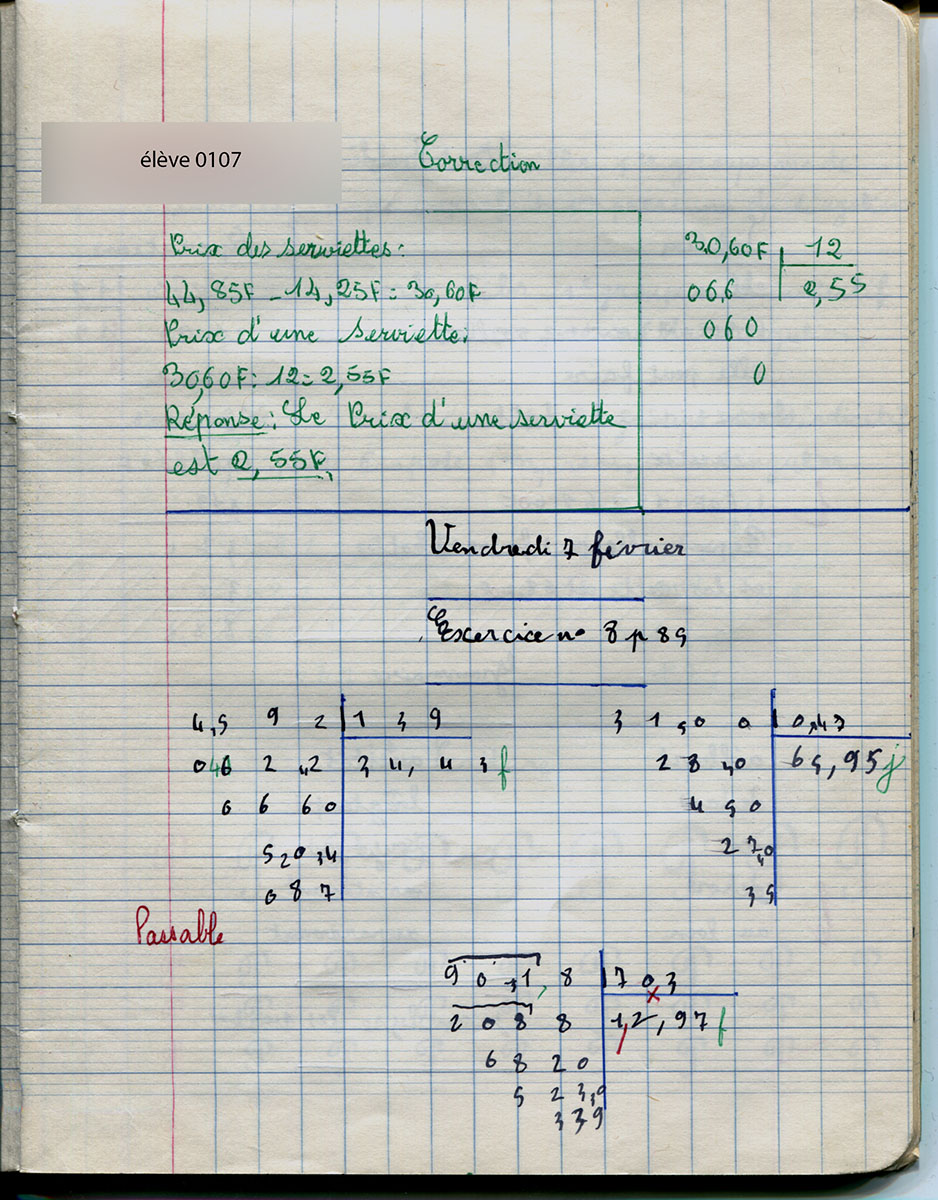 élève 0107
Correction
Prix des serviettes:
44,85F - 14,25F = 30,60F
Prix d'une serviette:
30,60F : 12 = 2,55F
Réponse: Le Prix d'une serviette
est 2,55F.
30,60F 12
06,6 2,55
060
0
Vendredi 7 février
Exercice n° 8 p 89
4,5 9 2 1 3 9
2 ,2 3 4, 4 3 f
6 6 60
0 8 7
3 1 ,0 0 0,47
2 8 ,0
2 7,0
Passable
9 0 ,1, 8 7 0,3
2 0 8 8 1,2,97 f
6 8 2 0
5 2 3,0
3 3 9